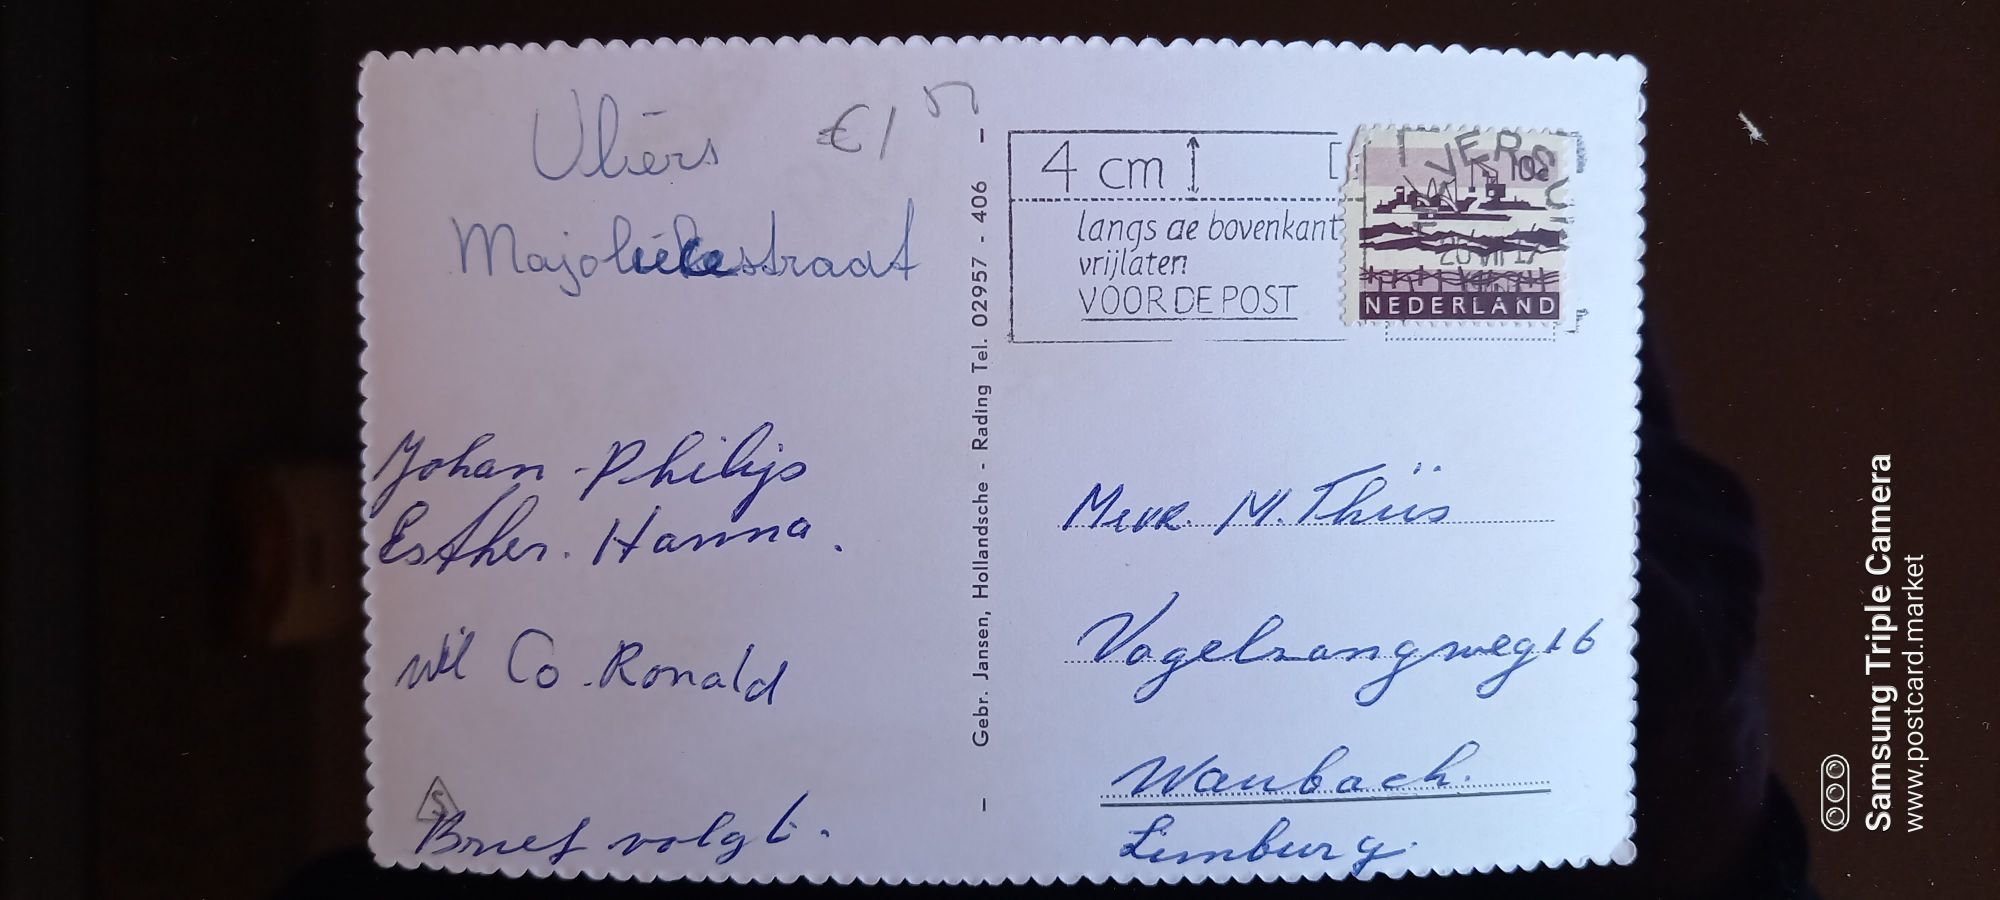 Uliers
€1
Majolieckestraat
Johan - Philijs
Esther. Hanna.
Wil Co. Ronald
S
Brief volgt.
Gebr. Jansen, Hollandsche - Rading Tel. 02957 - 406
4 cm
langs de bovenkant
vrijlaten
VOOR DE POST
10c
NEDERLAND
Mevr. M. Thijs
Vogelzangweg 16
Waubach.
Limburg.
Samsung Triple Camera
www.postcard.market